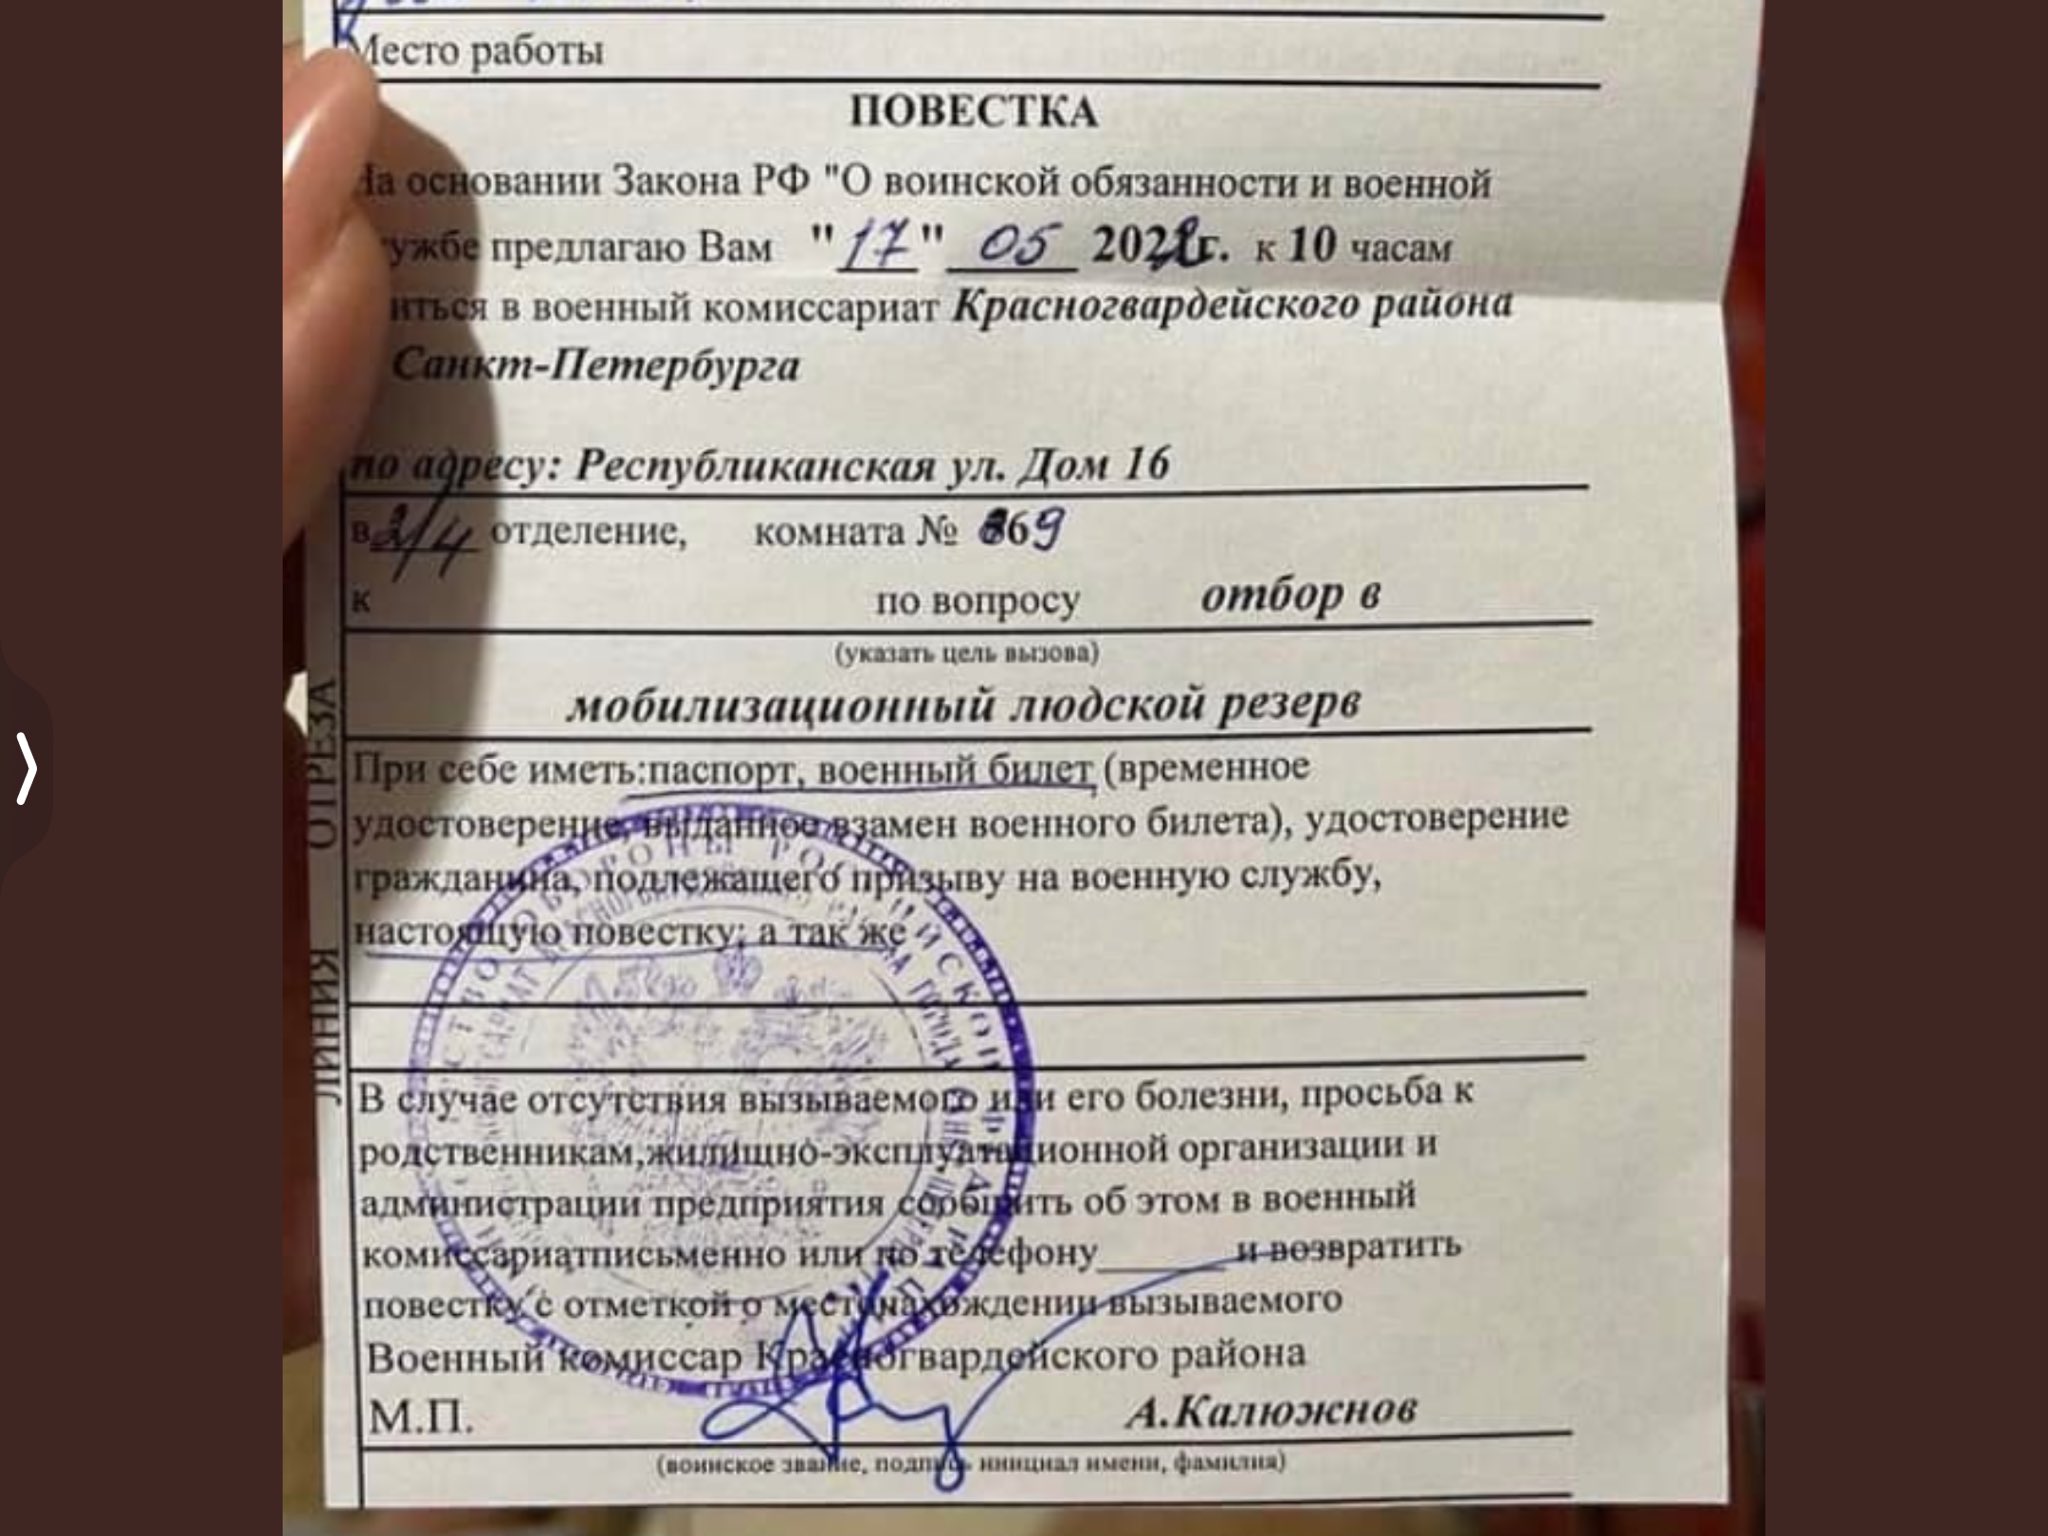 Место работы
ПОВЕСТКА
На основании Закона РФ "О воинской обязанности и военной
ужбе предлагаю Вам "17" 05 2022г. к 10 часам
иться в военный комиссариат Красногвардейского района
Санкт-Петербурга
по адресу: Республиканская ул. Дом 16
в 2/4 отделение, комната № 69
к по вопросу отбор в
(указать цель вызова)
мобилизационный людской резерв
При себе иметь:паспорт, военный билет (временное
удостоверение, выданное взамен военного билета), удостоверение
гражданина, подлежащего призыву на военную службу,
настоящую повестку; а так же
В случае отсутствия вызываемого или его болезни, просьба к
родственникам,жилищно-эксплуатационной организации и
администрации предприятия сообщить об этом в военный
комиссариатписьменно или по телефону______ и возвратить
повестку с отметкой о местонахождении вызываемого
Военный комиссар Красногвардейского района
М.П. А.Калюжнов
(воинское звание, подпись инициал имени, фамилия)
ЛИНИЯ ОТРЕЗА
ОБОРОНЫ РОССИЙСКОЙ